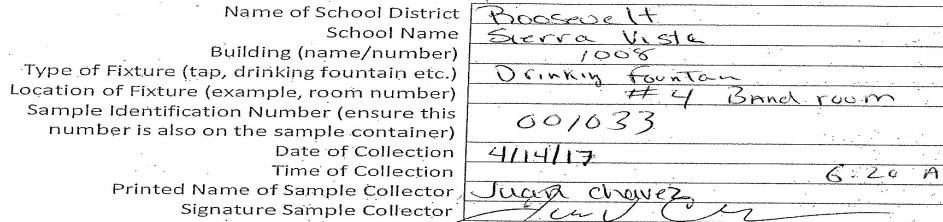 Name of School District Roosevelt
School Name Sierra Vista
Building (name/number) 1008
Type of Fixture (tap, drinking fountain etc.) Drinkin fountan
Location of Fixture (example, room number) # 4 Band room
Sample Identification Number (ensure this
number is also on the sample container) 001033
Date of Collection 4/14/17
Time of Collection 6:20 A
Printed Name of Sample Collector Juan Chavez
Signature Sample Collector